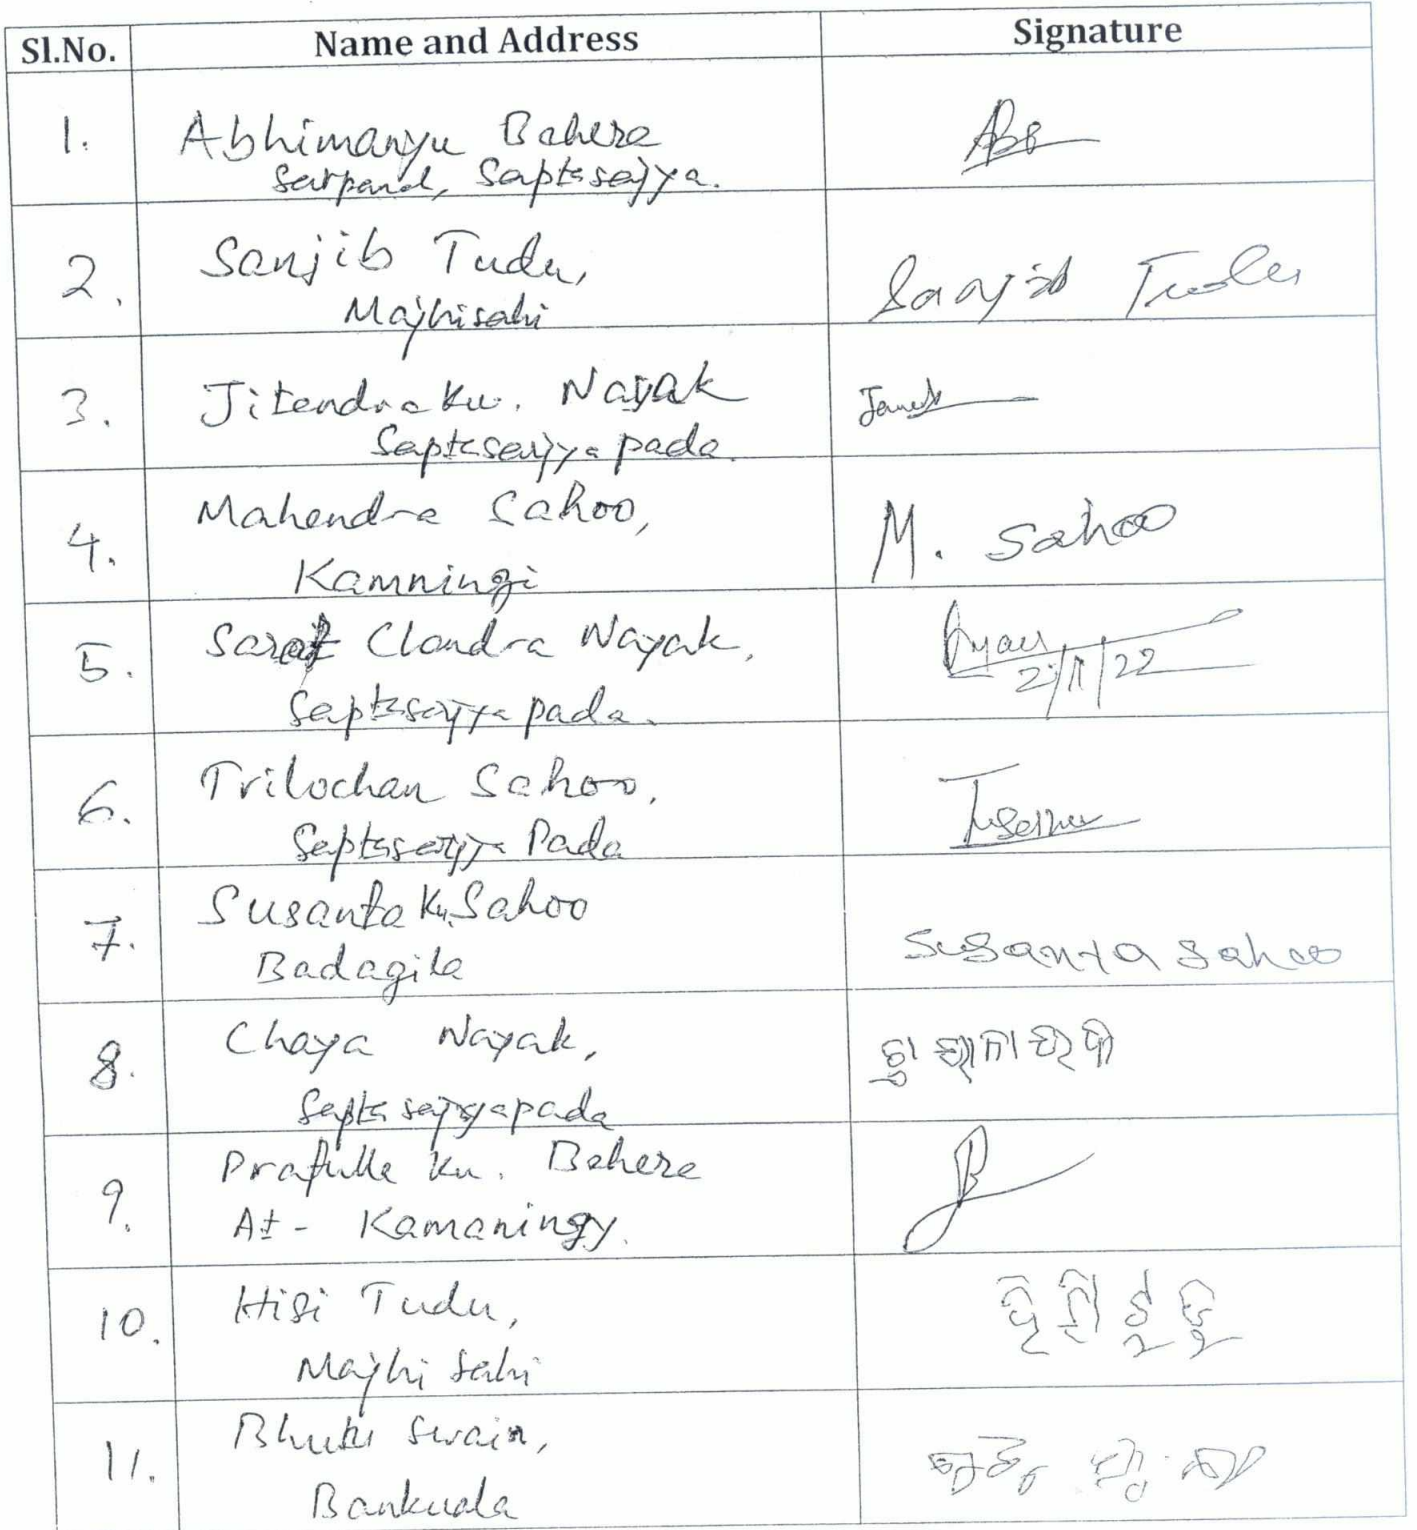 Sl.No. Name and Address Signature
1. Abhimanyu Bahera
Sarpand, Saptasajya.
2. Sanjib Tudu, Sanjib Tudu
Majhisahi
3. Jitendra Ku. Nayak
Saptasajya pada.
4. Mahendra Sahoo, M. Sahoo
Kamningi
5. Sarat Chandra Nayak,
Saptasajya pada. /11/22
6. Trilochan Sahoo,
Saptasajya Pada
7. Susanta Ku. Sahoo Susanta Sahoo
Badagila
8. Chaya Nayak,
Saptasajyapada
9. Prafulla Ku. Behera
At- Kamaningy.
10. Hisi Tudu,
Majhi Sahi
11. Bhutu Swain,
Bankuala